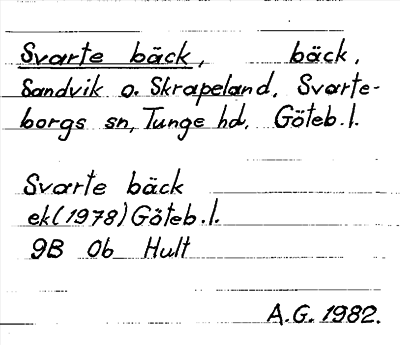 Svarte bäck, bäck,
Sandvik o. Skrapeland, Svarte-
borgs sn, Tunge hd, Göteb. l.
Svarte bäck
ek (1978) Göteb. l.
9B 0b Hult
A.G. 1982.